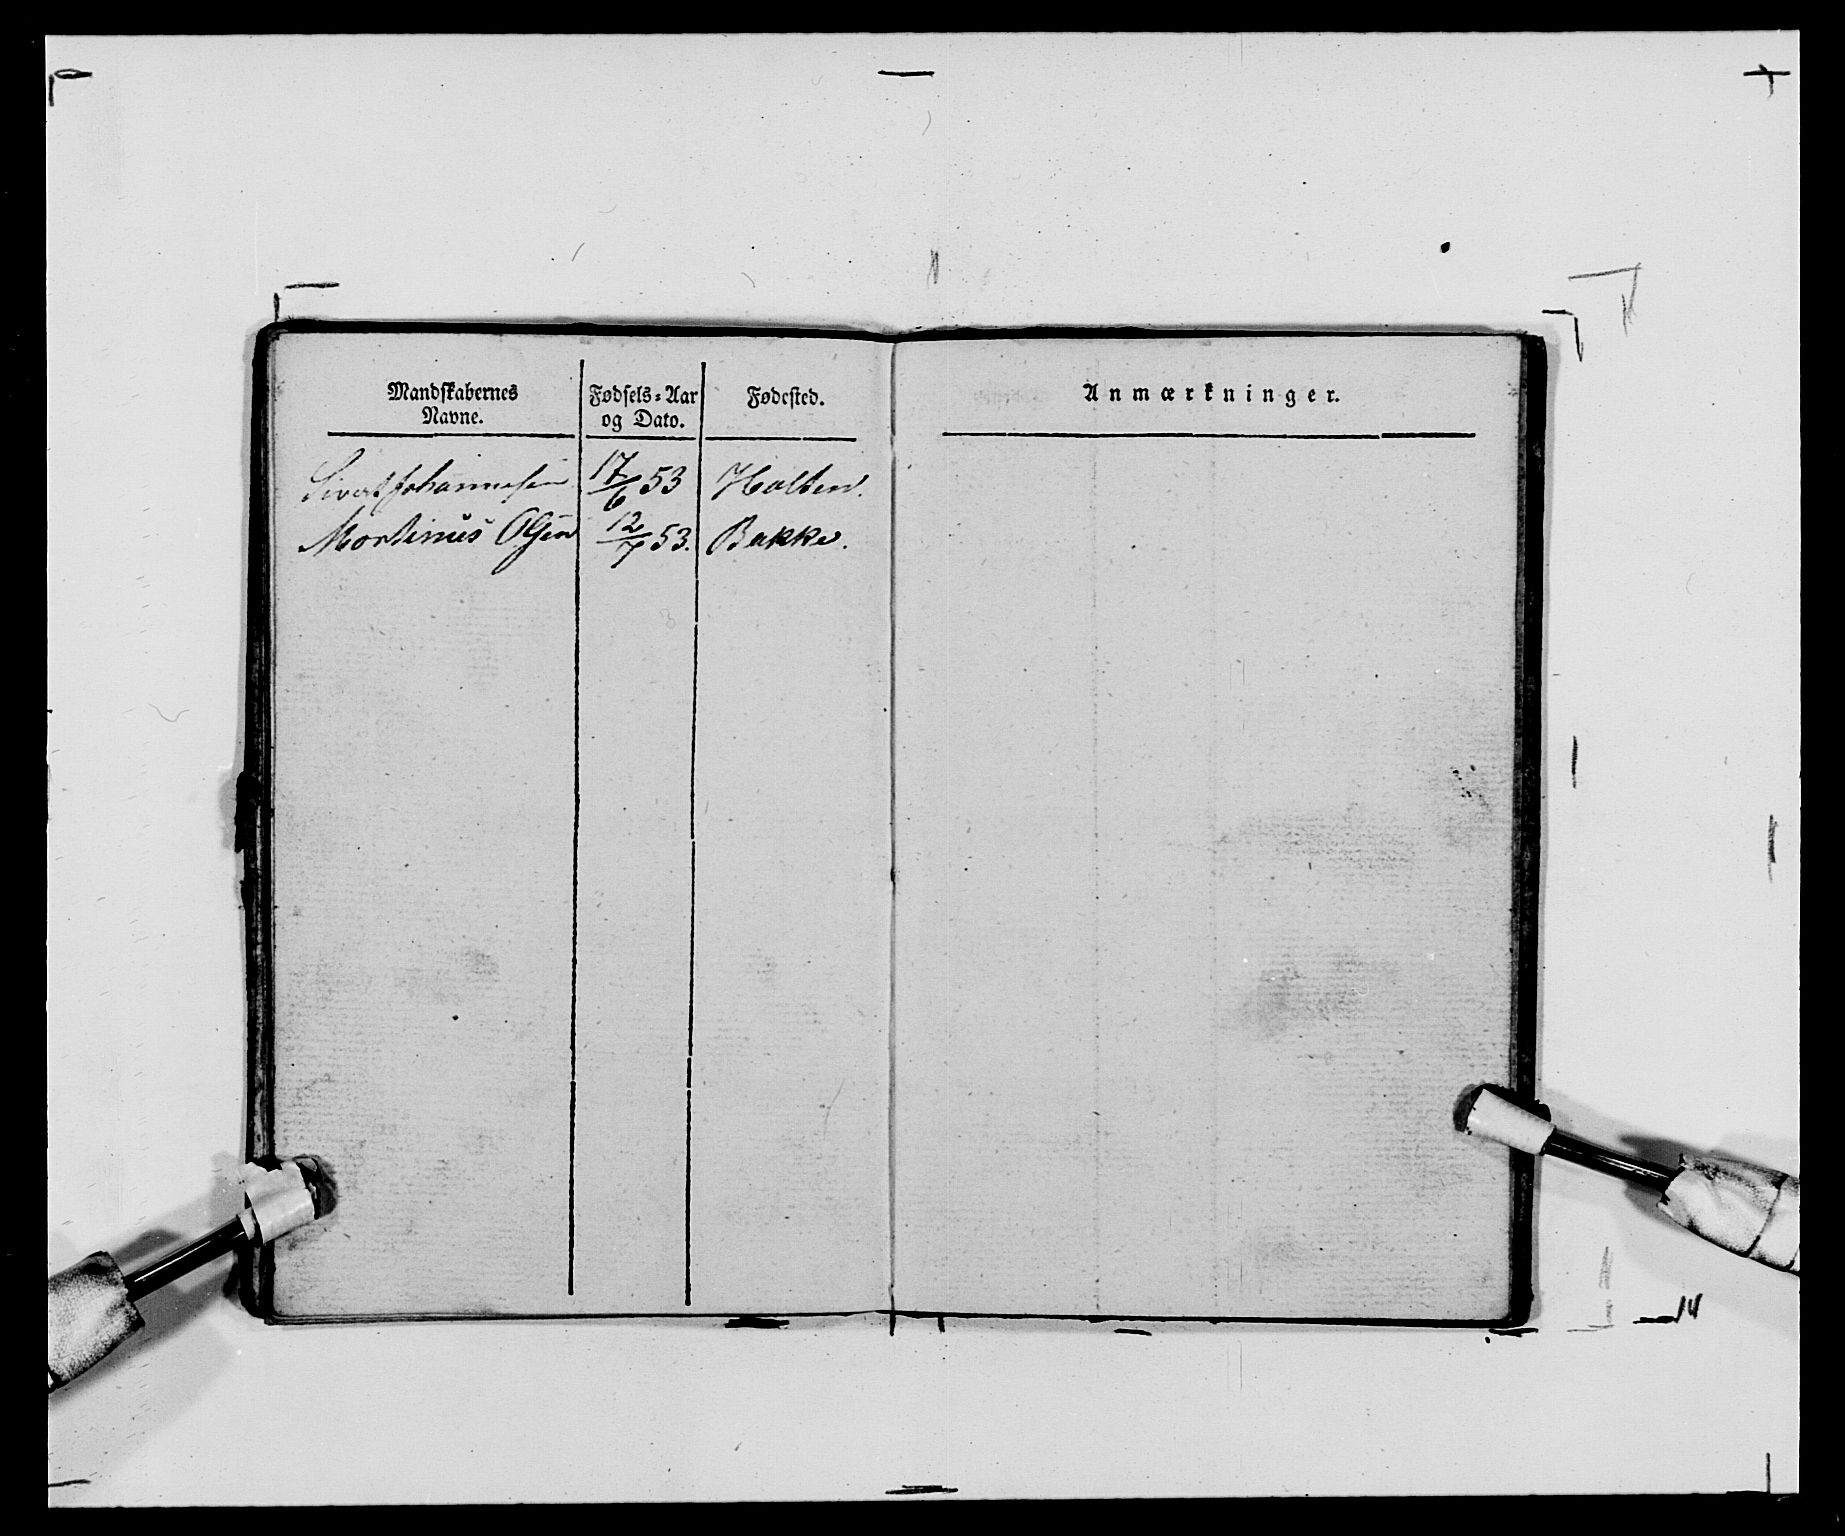 Mandskabernes Navne.
Fødsels-Aar og Dato.
Fødested.
Anmærkninger.
Sivert Johannesen 17/6 53 Holten.
Martinus Olsen 12/7 53. Bakke.
14